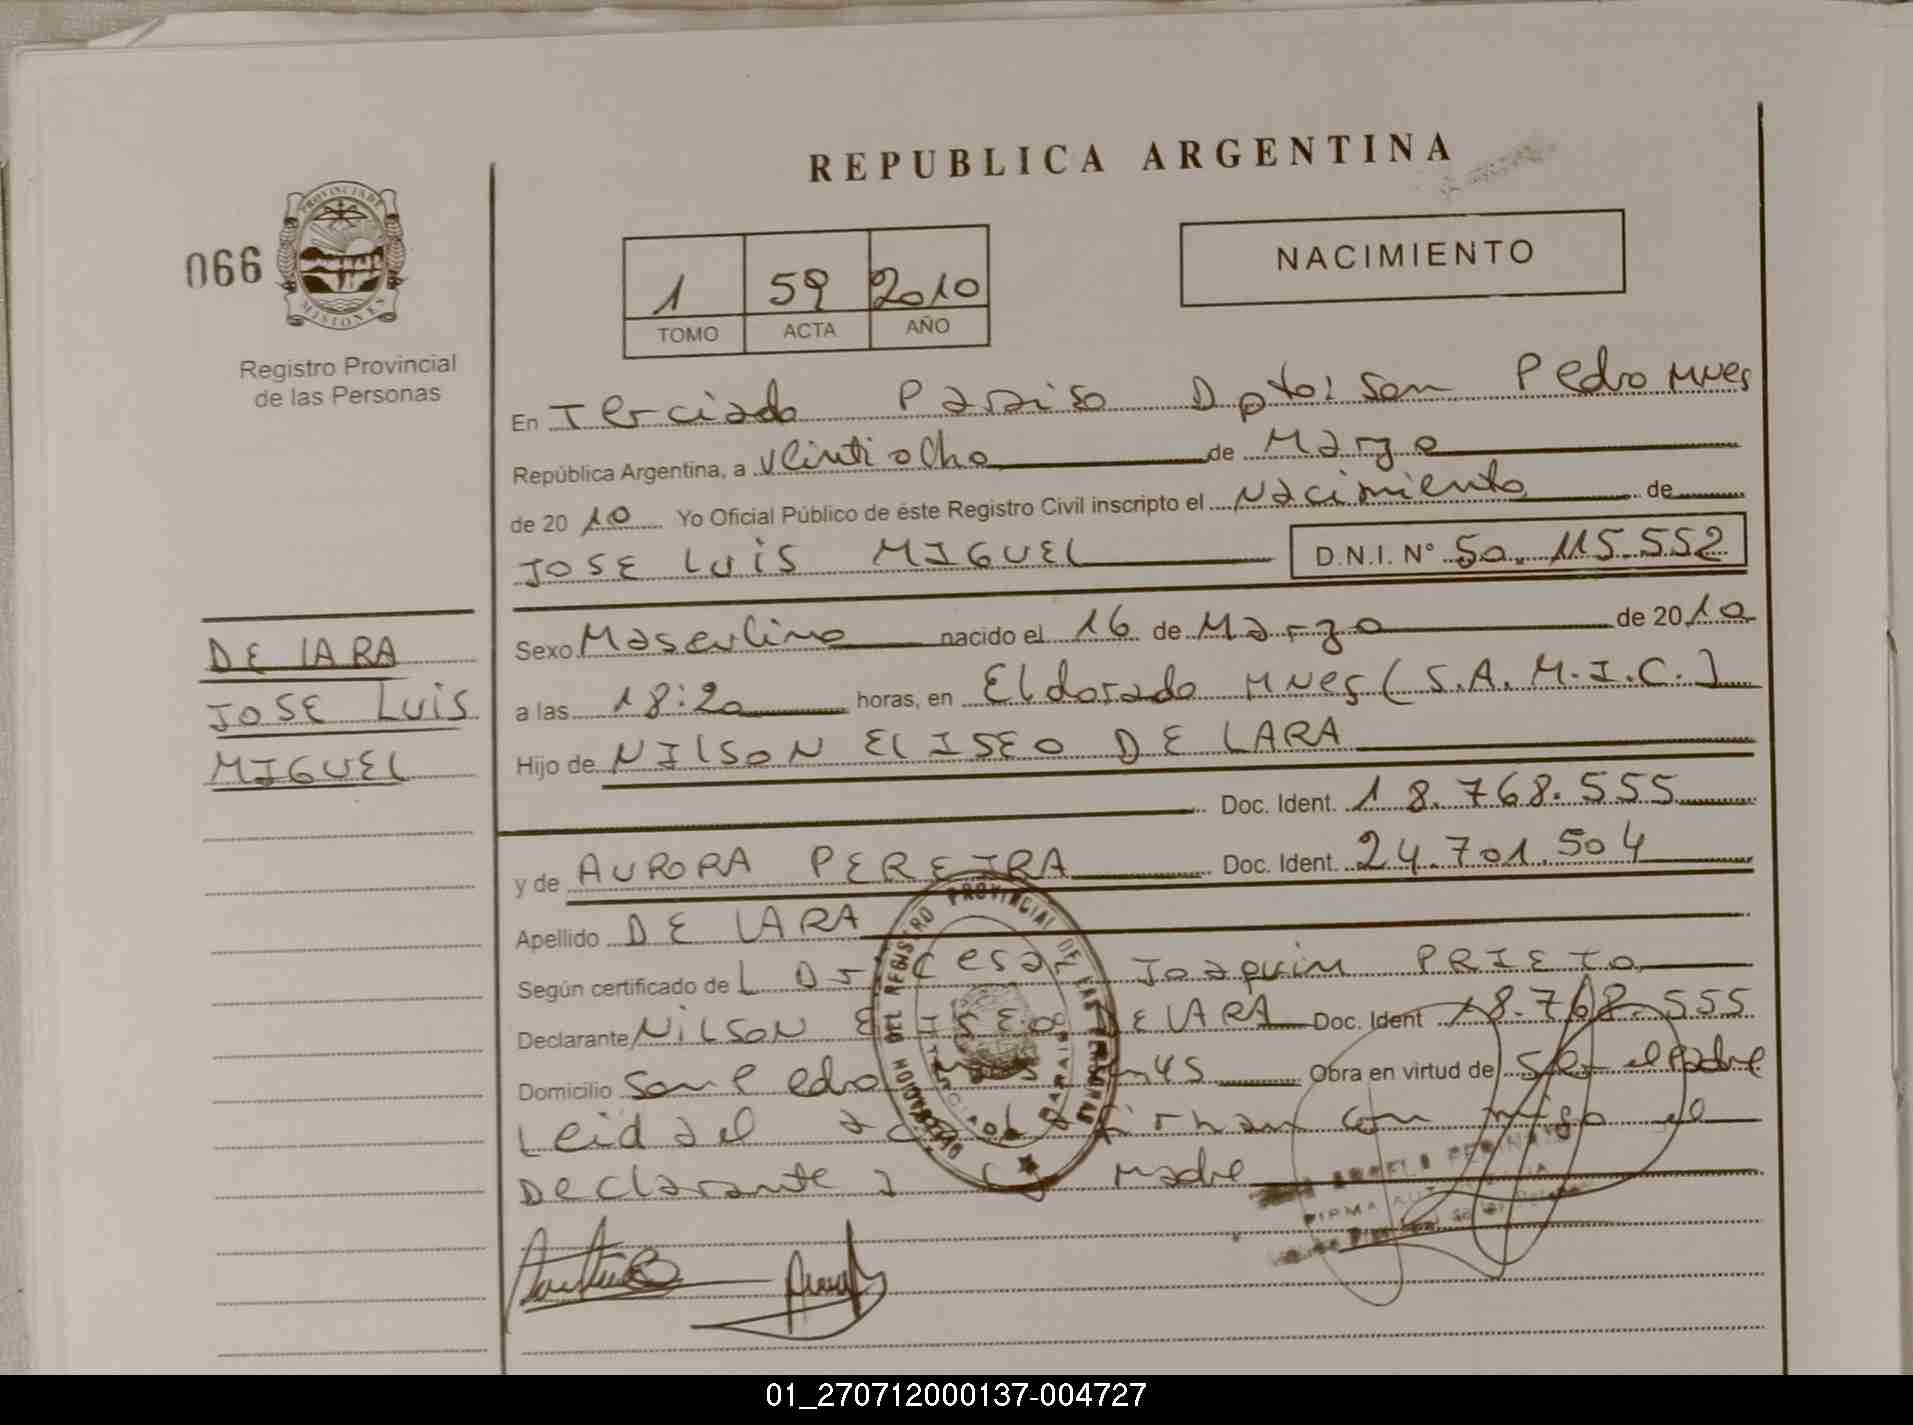 REPUBLICA ARGENTINA
066
PROVINCIA DE
MISIONES
Registro Provincial
de las Personas
1 59 2010
TOMO ACTA AÑO
NACIMIENTO
En Terciado Paraiso Dpto: San Pedro Mnes
República Argentina, a veintiocho de Marzo
de 2010 Yo Oficial Público de éste Registro Civil inscripto el Nacimiento de
JOSE LUIS MIGUEL D.N.I. N° 50.115.552
DE LARA
JOSE LUIS
MIGUEL
Sexo Masculino nacido el 16 de Marzo de 2010
a las 18:20 horas, en Eldorado Mnes (S.A.M.I.C.)
Hijo de NILSON ELISEO DE LARA
Doc. Ident. 18.768.555
y de AURORA PEREIRA Doc. Ident. 24.701.504
Apellido DE LARA
Según certificado de L Dr Cesar Joaquin PRIETO
Declarante NILSON ELISEO DE LARA Doc. Ident 18.768.555
Domicilio San Pedro Obra en virtud de Ser el Padre
Leida el acta firman con migo el
Declarante y la Madre
DELEGACION DEL REGISTRO PROVINCIAL DE LAS PERSONAS
01_270712000137-004727